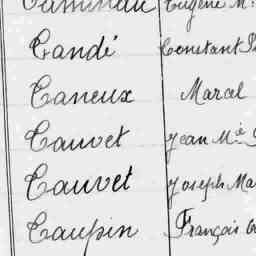 Eugène M.
Candé Constant
Caneux Marcel
Cauvet Jean Mie
Cauvet Joseph Ma
Caupin François